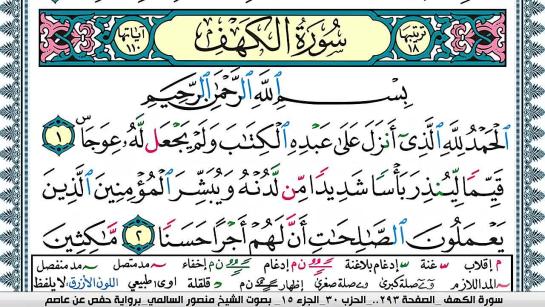 ترتيبها ١٨ سورة الكهف آياتها ١١٠
بِسْمِ ٱللَّهِ ٱلرَّحْمَٰنِ ٱلرَّحِيمِ
ٱلْحَمْدُ لِلَّهِ ٱلَّذِىٓ أَنزَلَ عَلَىٰ عَبْدِهِ ٱلْكِتَٰبَ وَلَمْ يَجْعَل لَّهُۥ عِوَجَاۜ ١
قَيِّمًا لِّيُنذِرَ بَأْسًا شَدِيدًا مِّن لَّدُنْهُ وَيُبَشِّرَ ٱلْمُؤْمِنِينَ ٱلَّذِينَ
يَعْمَلُونَ ٱلصَّٰلِحَٰتِ أَنَّ لَهُمْ أَجْرًا حَسَنًا ٢ مَّٰكِثِينَ
م إقلاب غنة ن م إدغام بلاغنة ن م إدغام ن م إخفاء مد متصل مد منفصل
المد اللازم صلة كبرى صلة صغرى قلقلة اوى: طبيعي اللون الأزرق: لا يلفظ
سورة الكهف_ الصفحة ٢٩٣.. الحزب ٣٠_ الجزء ١٥_ بصوت الشيخ منصور السالمي_ برواية حفص عن عاصم